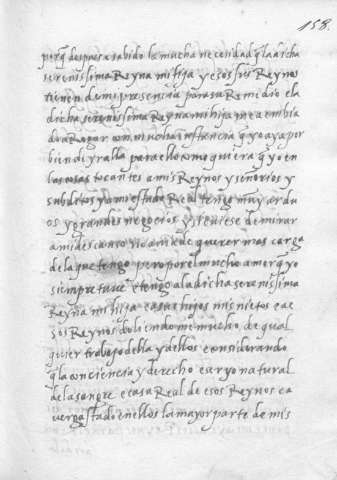 158.
porq̃ despues a sabido la mucha necesidad q̃ la dicha
serenissima Reyna mi hija y esos sus Reynos
tienen de mi presencia para su Remedio e la
dicha serenissima Reyna mi hija me a embia
do a Rogar con mucha instancia q̃ yo aya por
bien de yr alla para ello como quiera q̃ yo en
las cosas tocantes a mis Reynos y señorios y
subditos y a mi estado Real tengo muy ardu
os y grandes negocios y si oviese de mirar
a mi descanso no avia de querer mas carga
de la que tengo pero por el mucho amor q̃ yo
siempre tuve e tengo a la dicha serenissima
Reyna mi hija e a sus hijos mis nietos e a e
sos Reynos doliendome mucho de qual
quier trabajo della y dellos e considerando
q̃ la conciencia y derecho e argo natural
de la sangre e casa Real de esos Reynos e a
ver gastado en ellos la mayor parte de mis